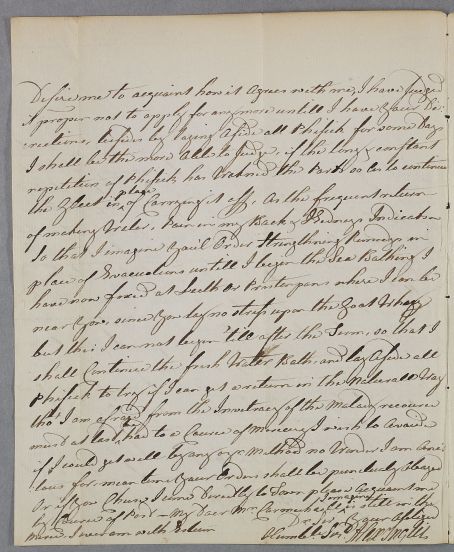 Desire me to acquaint how it agrees with me, I have judged
it proper not to apply for any more untill I have your Di-
rections, besides by laying aside all Phisick for some days
I shall be the more Able to Judge, if the long & constant
repetition of Phisick has the Parts so as to continue
the Gleet in place of Carrying it off. As the frequent return
of making Water, Pain in my Back & Kidneys Indicates
So that I imagine you'll Order Strengthning Remedys in
place of Evacuations untill I begin the Sea Bathing I
have now fixed at Leith or Prestonpans where I can be
near you, since you lay no stress upon the Goat Whey
but this I can not begin till after the Term, so that I
shall Continue the fresh Water Bath and lay Aside all
Phisick to try if I can get a return in the Naturall Way
tho' I am afraid from the of the Malady recourse
must at last be had to a Course of Mercury I wish to Avoide
if I could get well by any oyr Method no Wonder I am Anxi-
ous for mean time your Orders shall be punctualy obeyed
Or if you Chuse I come Directly to Town please Acquaint me
by Course of Post - My Dear Mrs Carmichaell is still in the
I ever am with Esteem Dr Sir Your
Humble Sert